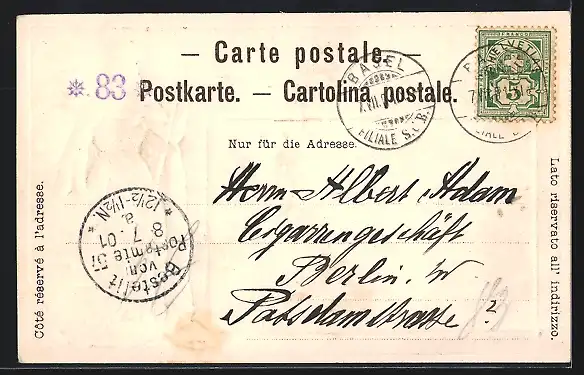 — Carte postale. —
* 83 *
Postkarte. — Cartolina postale.
Nur für die Adresse.
BASEL
7.VII.
FILIALE S.B.B.
HELVETIA
FRANCO
5
Herrn Albert Adam
Cigarrengeschäft
Berlin. W
Potsdamstrasse ?
Bestellt
vom
Postamte 57
8 7. 01
a
* 12½-1½N. *
Côté réservé à l'adresse.
Lato riservato all' indirizzo.